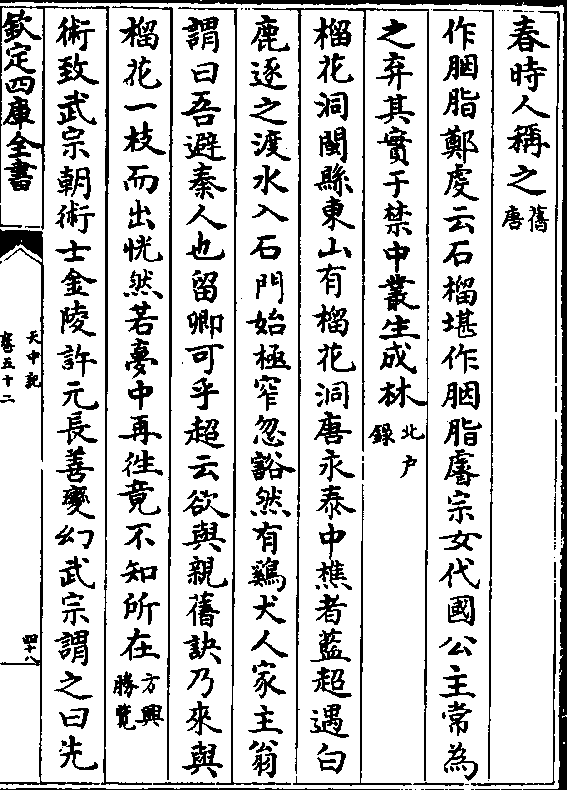 春時人稱之舊唐
作胭脂鄭虔云石榴堪作胭脂睿宗女代國公主常為
之弃其實于禁中叢生成林北户錄
榴花洞閩縣東山有榴花洞唐永泰中樵者藍超遇白
鹿逐之渡水入石門始極窄忽豁然有雞犬人家主翁
謂曰吾避秦人也留卿可乎超云欲與親舊訣乃來與
榴花一枝而出恍然若夢中再徃竟不知所在方輿勝覽
術致武宗朝術士金陵許元長善變幻武宗謂之曰先
欽定四庫全書
天中記
卷五十二
四十八